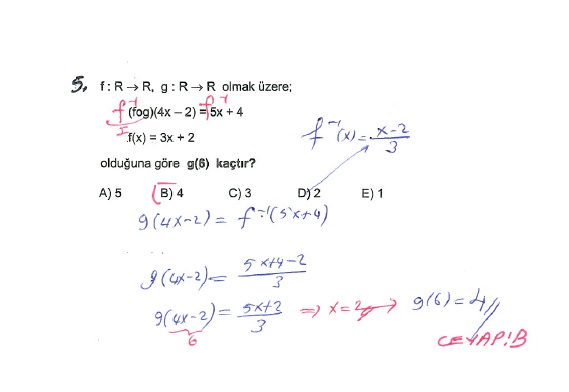 5. f : R → R, g : R → R olmak üzere;
f⁻¹(fog)(4x – 2) = f⁻¹ 5x + 4
I
f(x) = 3x + 2
f⁻¹(x) = (x-2)/3
olduğuna göre g(6) kaçtır?
A) 5 B) 4 C) 3 D) 2 E) 1
g(4x-2) = f⁻¹(5x+4)
g(4x-2) = (5x+4-2)/3
g(4x-2) = (5x+2)/3 ⇒ x=2 → g(6) = 4
6
CEVAP:B